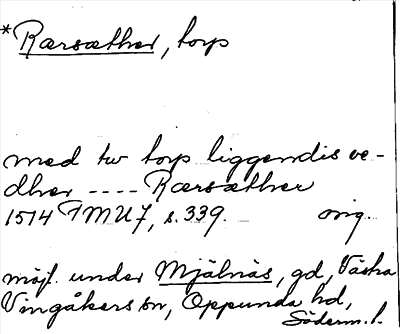 *Rærsæther, torp
med tw torp liggendis ve-
dher ---- Rærsæther
1514 FMU7, s. 339. orig.
möjl. under Mjälnäs, gd, Västra
Vingåkers sn, Oppunda hd,
Söderm. l.